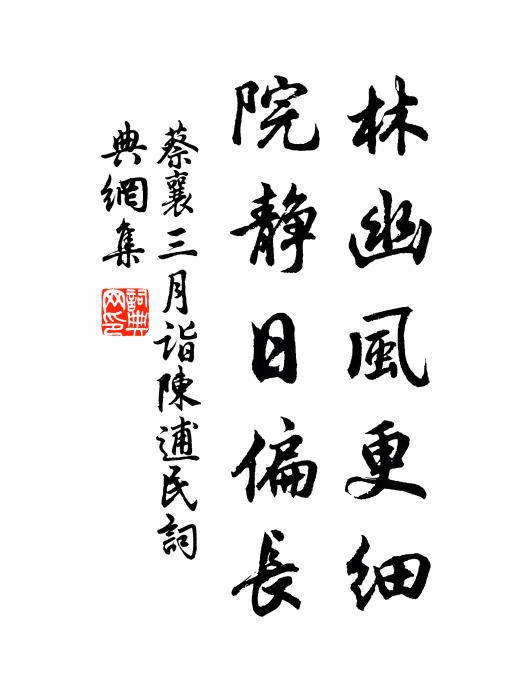 林幽風更細
院靜日偏長
蔡襄三月詣陳逋民詞
典網集
詞典網印